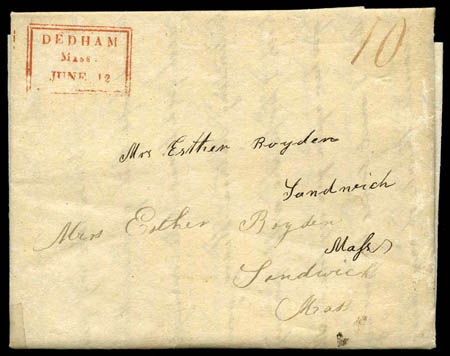 DEDHAM
Mass.
JUNE 12
10
Mrs Esther Boyden
Sandwich
Mass
Mrs Esther Boyden
Sandwich
Mas